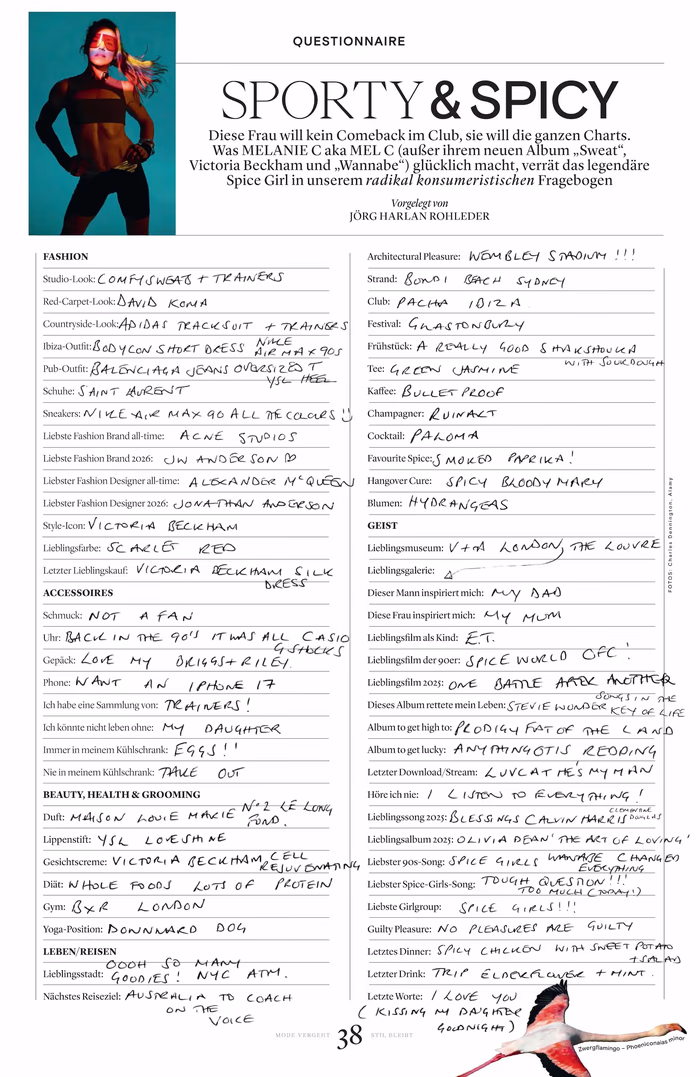 QUESTIONNAIRE
SPORTY & SPICY
Diese Frau will kein Comeback im Club, sie will die ganzen Charts.
Was MELANIE C aka MEL C (außer ihrem neuen Album „Sweat“,
Victoria Beckham und „Wannabe“) glücklich macht, verrät das legendäre
Spice Girl in unserem radikal konsumeristischen Fragebogen
Vorgelegt von
JÖRG HARLAN ROHLEDER
FASHION
Studio-Look: COMFY SWEATS + TRAINERS
Red-Carpet-Look: DAVID KOMA
Countryside-Look: ADIDAS TRACKSUIT + TRAINERS
Ibiza-Outfit: BODYCON SHORT DRESS NIKE
AIR MAX 90S
Pub-Outfit: BALENCIAGA JEANS OVERSIZED T
YSL HEEL
Schuhe: SAINT LAURENT
Sneakers: NIKE AIR MAX 90 ALL THE COLOURS
Liebste Fashion Brand all-time: ACNE STUDIOS
Liebste Fashion Brand 2026: JW ANDERSON ♡
Liebster Fashion Designer all-time: ALEXANDER McQUEEN
Liebster Fashion Designer 2026: JONATHAN ANDERSON
Style-Icon: VICTORIA BECKHAM
Lieblingsfarbe: SCARLET RED
Letzter Lieblingskauf: VICTORIA BECKHAM SILK
DRESS
ACCESSOIRES
Schmuck: NOT A FAN
Uhr: BACK IN THE 90'S IT WAS ALL CASIO
G SHOCKS
Gepäck: LOVE MY BRIGGS + RILEY.
Phone: WANT AN IPHONE 17
Ich habe eine Sammlung von: TRAINERS!
Ich könnte nicht leben ohne: MY DAUGHTER
Immer in meinem Kühlschrank: EGGS!!
Nie in meinem Kühlschrank: TAKE OUT
BEAUTY, HEALTH & GROOMING
Duft: MAISON LOUIE MARIE Nº2 LE LONG
FOND.
Lippenstift: YSL LOVESHINE
Gesichtscreme: VICTORIA BECKHAM CELL
REJUVENATING
Diät: WHOLE FOODS LOTS OF PROTEIN
Gym: BXR LONDON
Yoga-Position: DOWNWARD DOG
LEBEN/REISEN
OOOH SO MANY
Lieblingsstadt: GOODIES! NYC ATM.
Nächstes Reiseziel: AUSTRALIA TO COACH
ON THE
VOICE
Architectural Pleasure: WEMBLEY STADIUM!!!
Strand: BONDI BEACH SYDNEY
Club: PACHA IBIZA
Festival: GLASTONBURY
Frühstück: A REALLY GOOD SHAKSHOUKA
WITH SOURDOUGH
Tee: GREEN JASMINE
Kaffee: BULLETPROOF
Champagner: RUINART
Cocktail: PALOMA
Favourite Spice: SMOKED PAPRIKA!
Hangover Cure: SPICY BLOODY MARY
Blumen: HYDRANGEAS
GEIST
Lieblingsmuseum: V+A LONDON, THE LOUVRE
Lieblingsgalerie:
Dieser Mann inspiriert mich: MY DAD
Diese Frau inspiriert mich: MY MUM
Lieblingsfilm als Kind: E.T.
Lieblingsfilm der 90er: SPICE WORLD OFC!
Lieblingsfilm 2025: ONE BATTLE AFTER ANOTHER
Dieses Album rettete mein Leben: STEVIE WONDER SONGS IN THE
KEY OF LIFE
Album to get high to: PRODIGY FAT OF THE LAND
Album to get lucky: ANYTHING OTIS REDDING
Letzter Download/Stream: LUVCAT HE'S MY MAN
Höre ich nie: I LISTEN TO EVERYTHING!
Lieblingssong 2025: BLESSINGS CALVIN HARRIS CLEMENTINE
DOUGLAS
Lieblingsalbum 2025: OLIVIA DEAN 'THE ART OF LOVING'
Liebster 90s-Song: SPICE GIRLS WANNABE CHANGED
EVERYTHING
Liebster Spice-Girls-Song: TOUGH QUESTION!!!
TOO MUCH (TODAY!)
Liebste Girlgroup: SPICE GIRLS!!!
Guilty Pleasure: NO PLEASURES ARE GUILTY
Letztes Dinner: SPICY CHICKEN WITH SWEET POTATO
+ SALAD
Letzter Drink: TRIP ELDERFLOWER + MINT.
Letzte Worte: I LOVE YOU
(KISSING MY DAUGHTER
GOODNIGHT)
FOTOS: Charles Dennington, Alamy
MODE VERGEHT 38 STIL BLEIBT
Zwergflamingo – Phoeniconaias minor